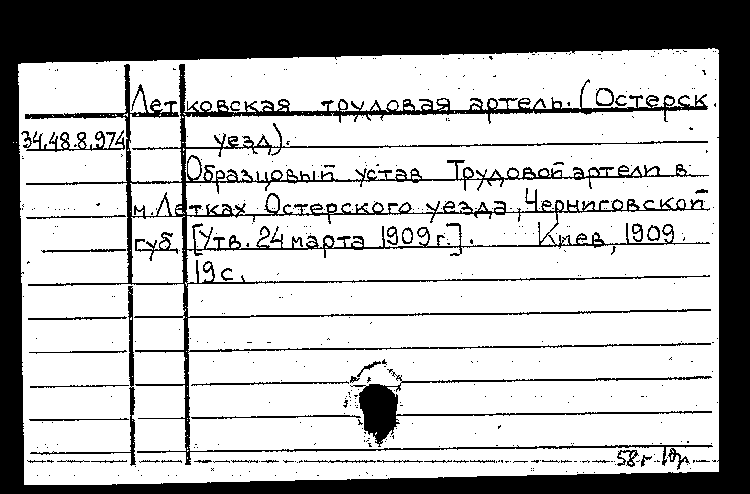 Летковская трудовая артель. (Остерск.
34.48.8.974 уезд).
Образцовый устав Трудовой артели в
м. Летках, Остерского уезда, Черниговской
губ. [Утв. 24 марта 1909 г.]. Киев, 1909.
19 с.
58г